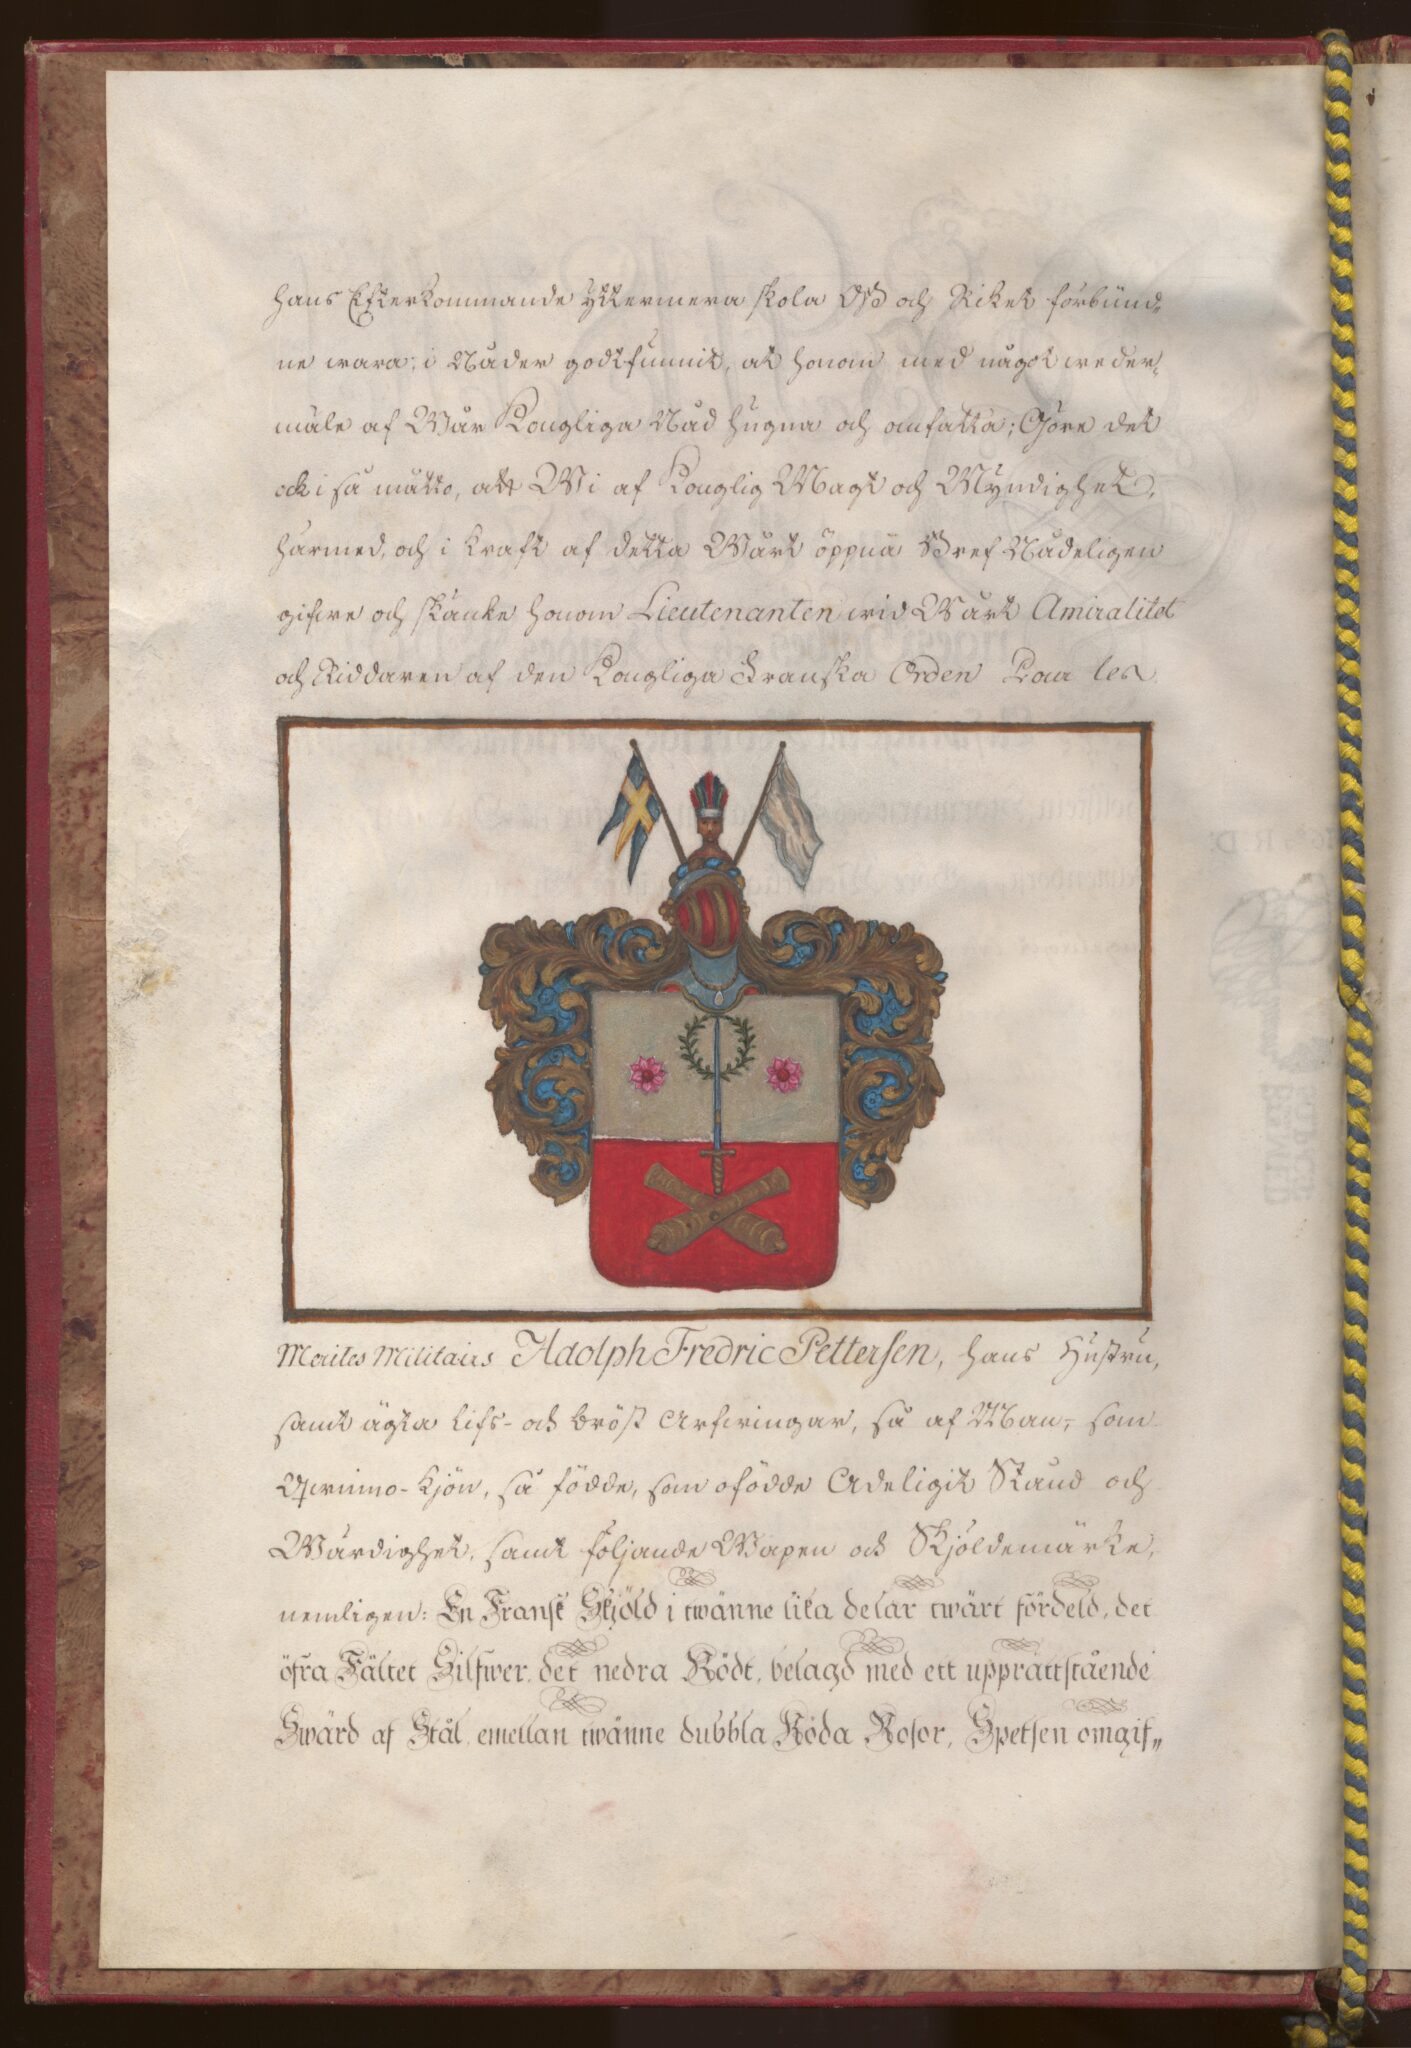 hans Efterkommande ÿttermera skola OSS och Riket förbünd„
ne wara; i Nåder godtfunnit, at honom med något weder„
mäle af Wår Kongliga Nåd hugna och anfatta; Göre det
ock i så mätto, att Wi af Konglig Magt och Mÿndighet,
härmed, och i kraft af detta Wårt öppna Bref Nådeligen
gifwe och skänke honom Lieutenanten wid Wårt Amiralitet
och Riddaren af den Kongliga Franska Orden Pour les
Merites Militairs Adolph Fredric Pettersen, hans Hustru,
samt ägta Lifs- och bröst Arfwingar, så af Man-, som
Qwinno-Kjön, så födde, som ofödde Adeligit Stånd och
Wärdighet, samt följande Wapen och Skjöldemärke,
nemligen: En Fransk Skjöld i twänne lika delar twärt fördeld, det
öfra Fältet Silfwer, det nedra Rödt, belagd med ett upprättstående
Swärd af Stål emellan twänne dubbla Röda Rosor, Spetsen omgif„